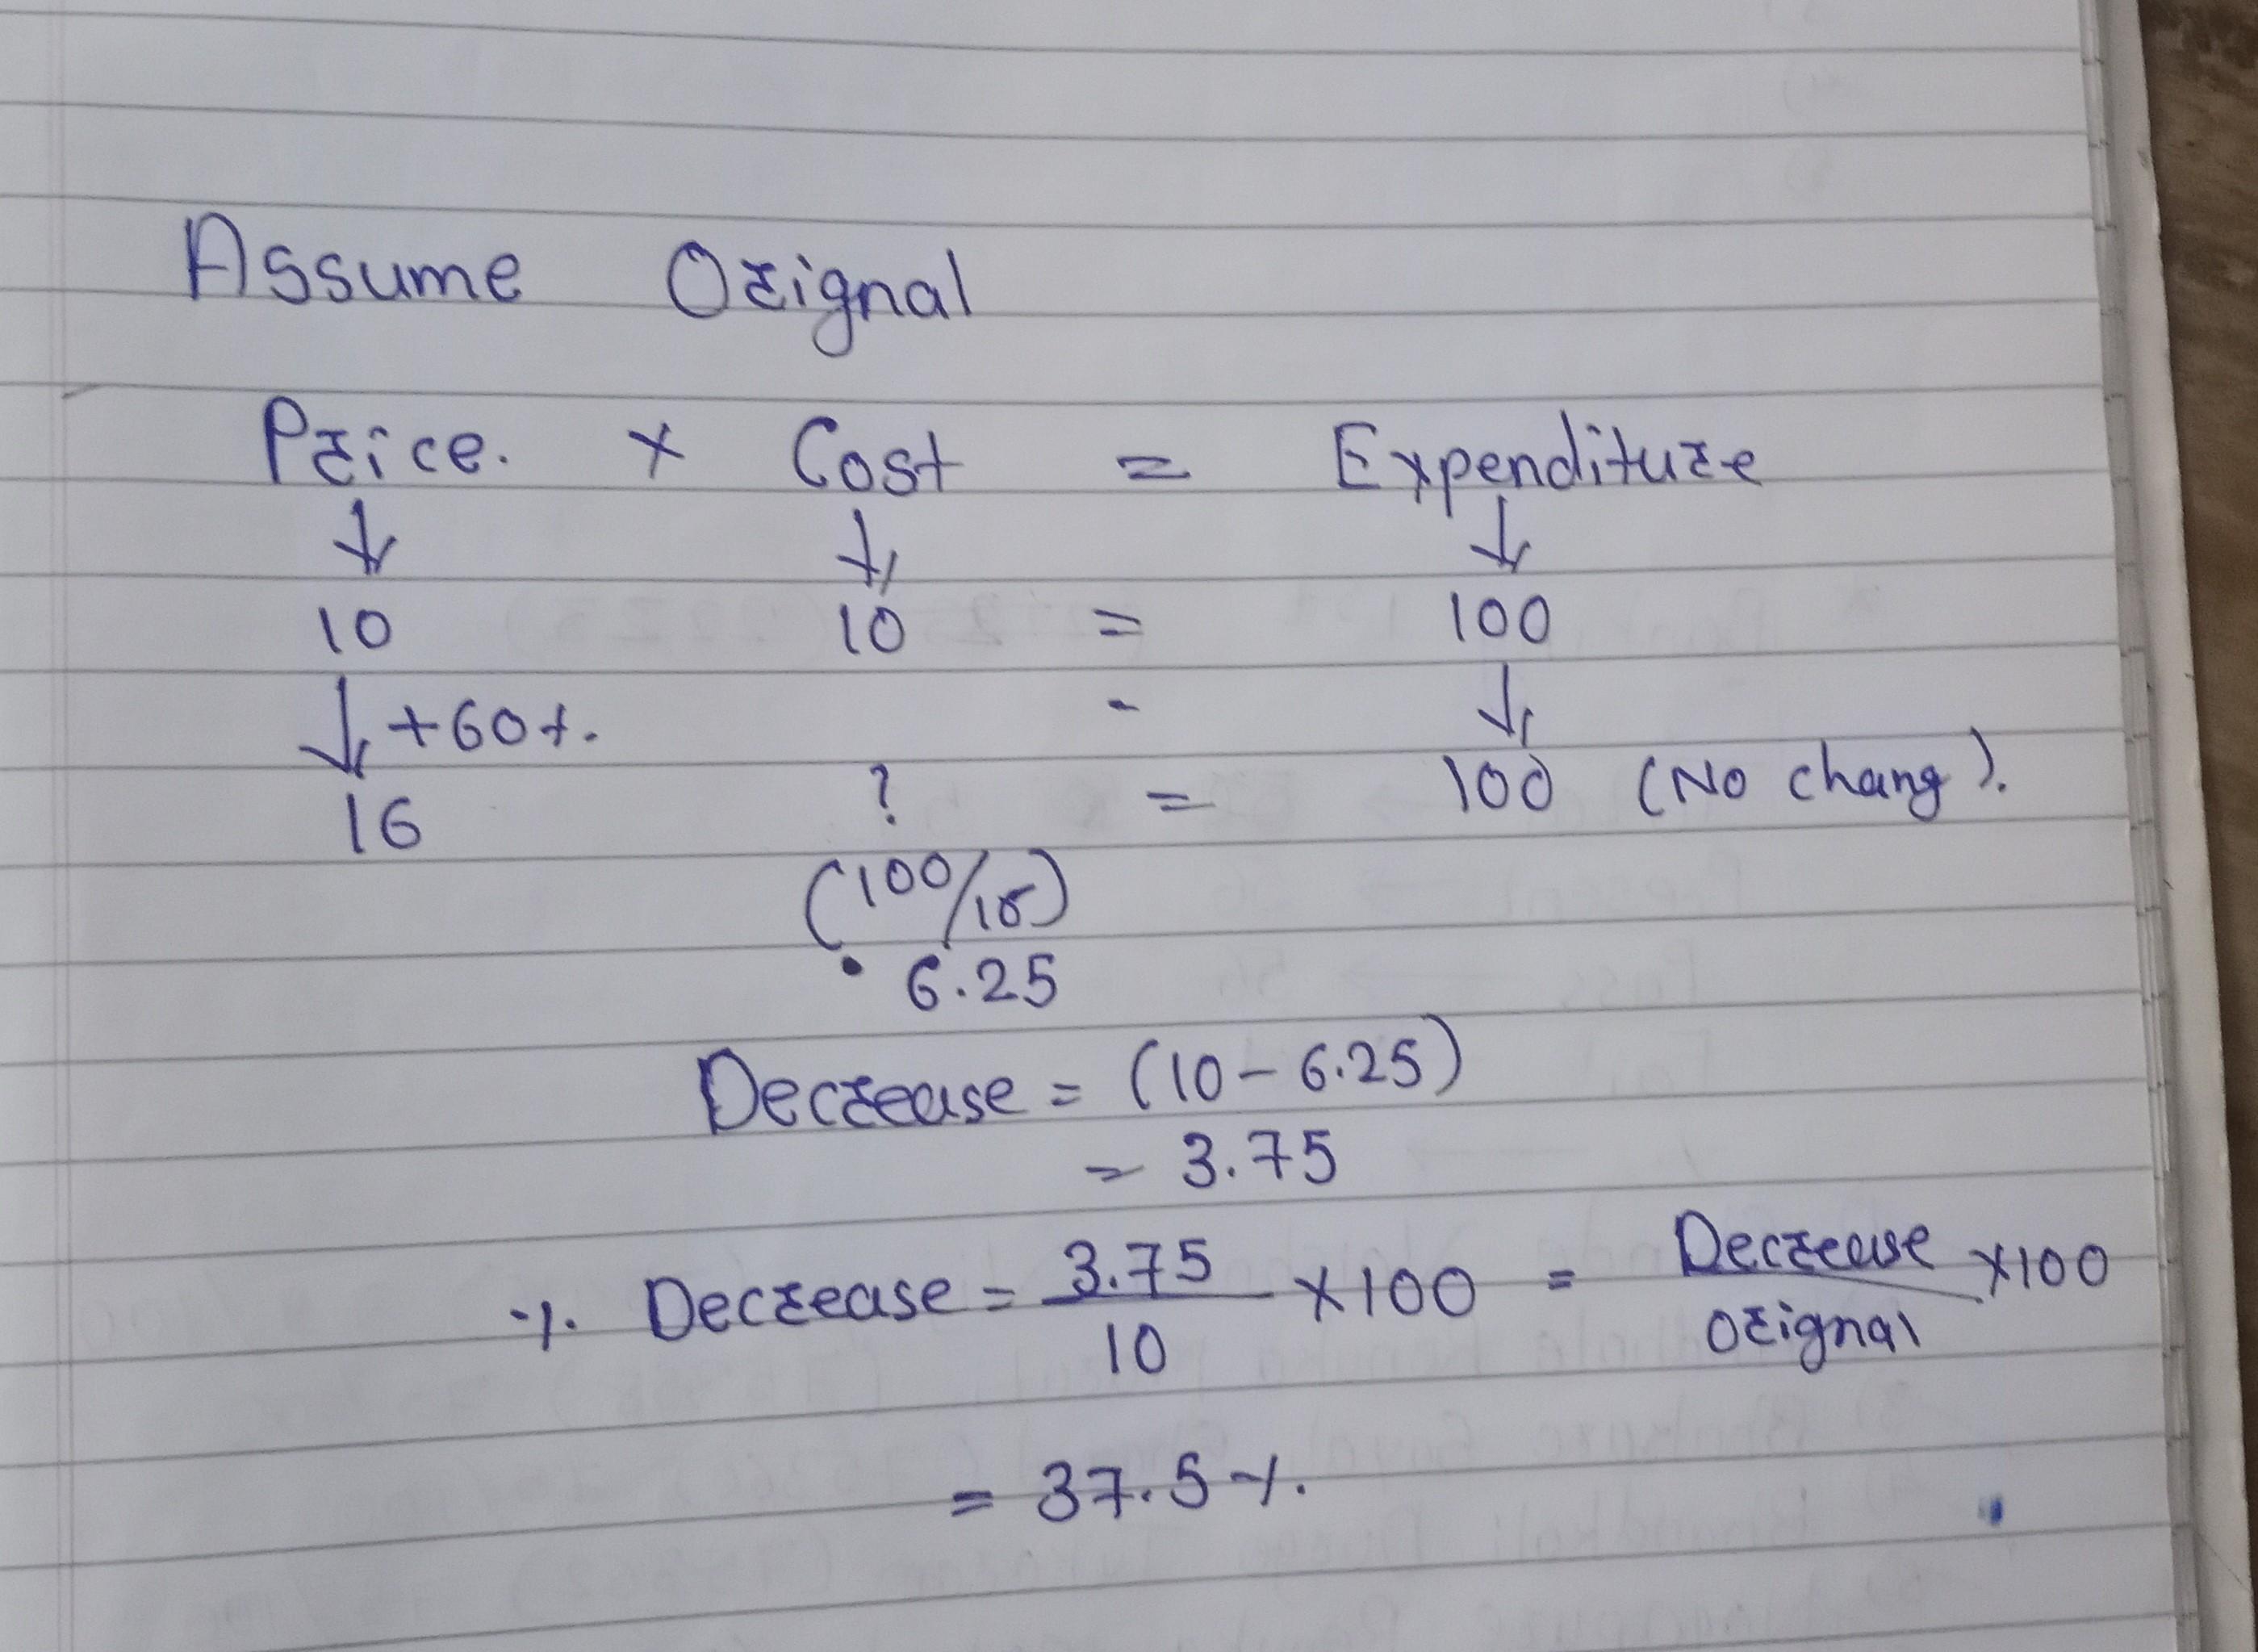 Assume Orignal
Price. × Cost = Expenditure
↓ ↓ ↓
10 10 = 100
↓ +60%. - ↓
16 ? = 100 (No chang).
(100/16)
• 6.25
Decrease = (10 - 6.25)
= 3.75
% Decrease = 3.75/10 ×100 = Decrease/orignal ×100
= 37.5 %.